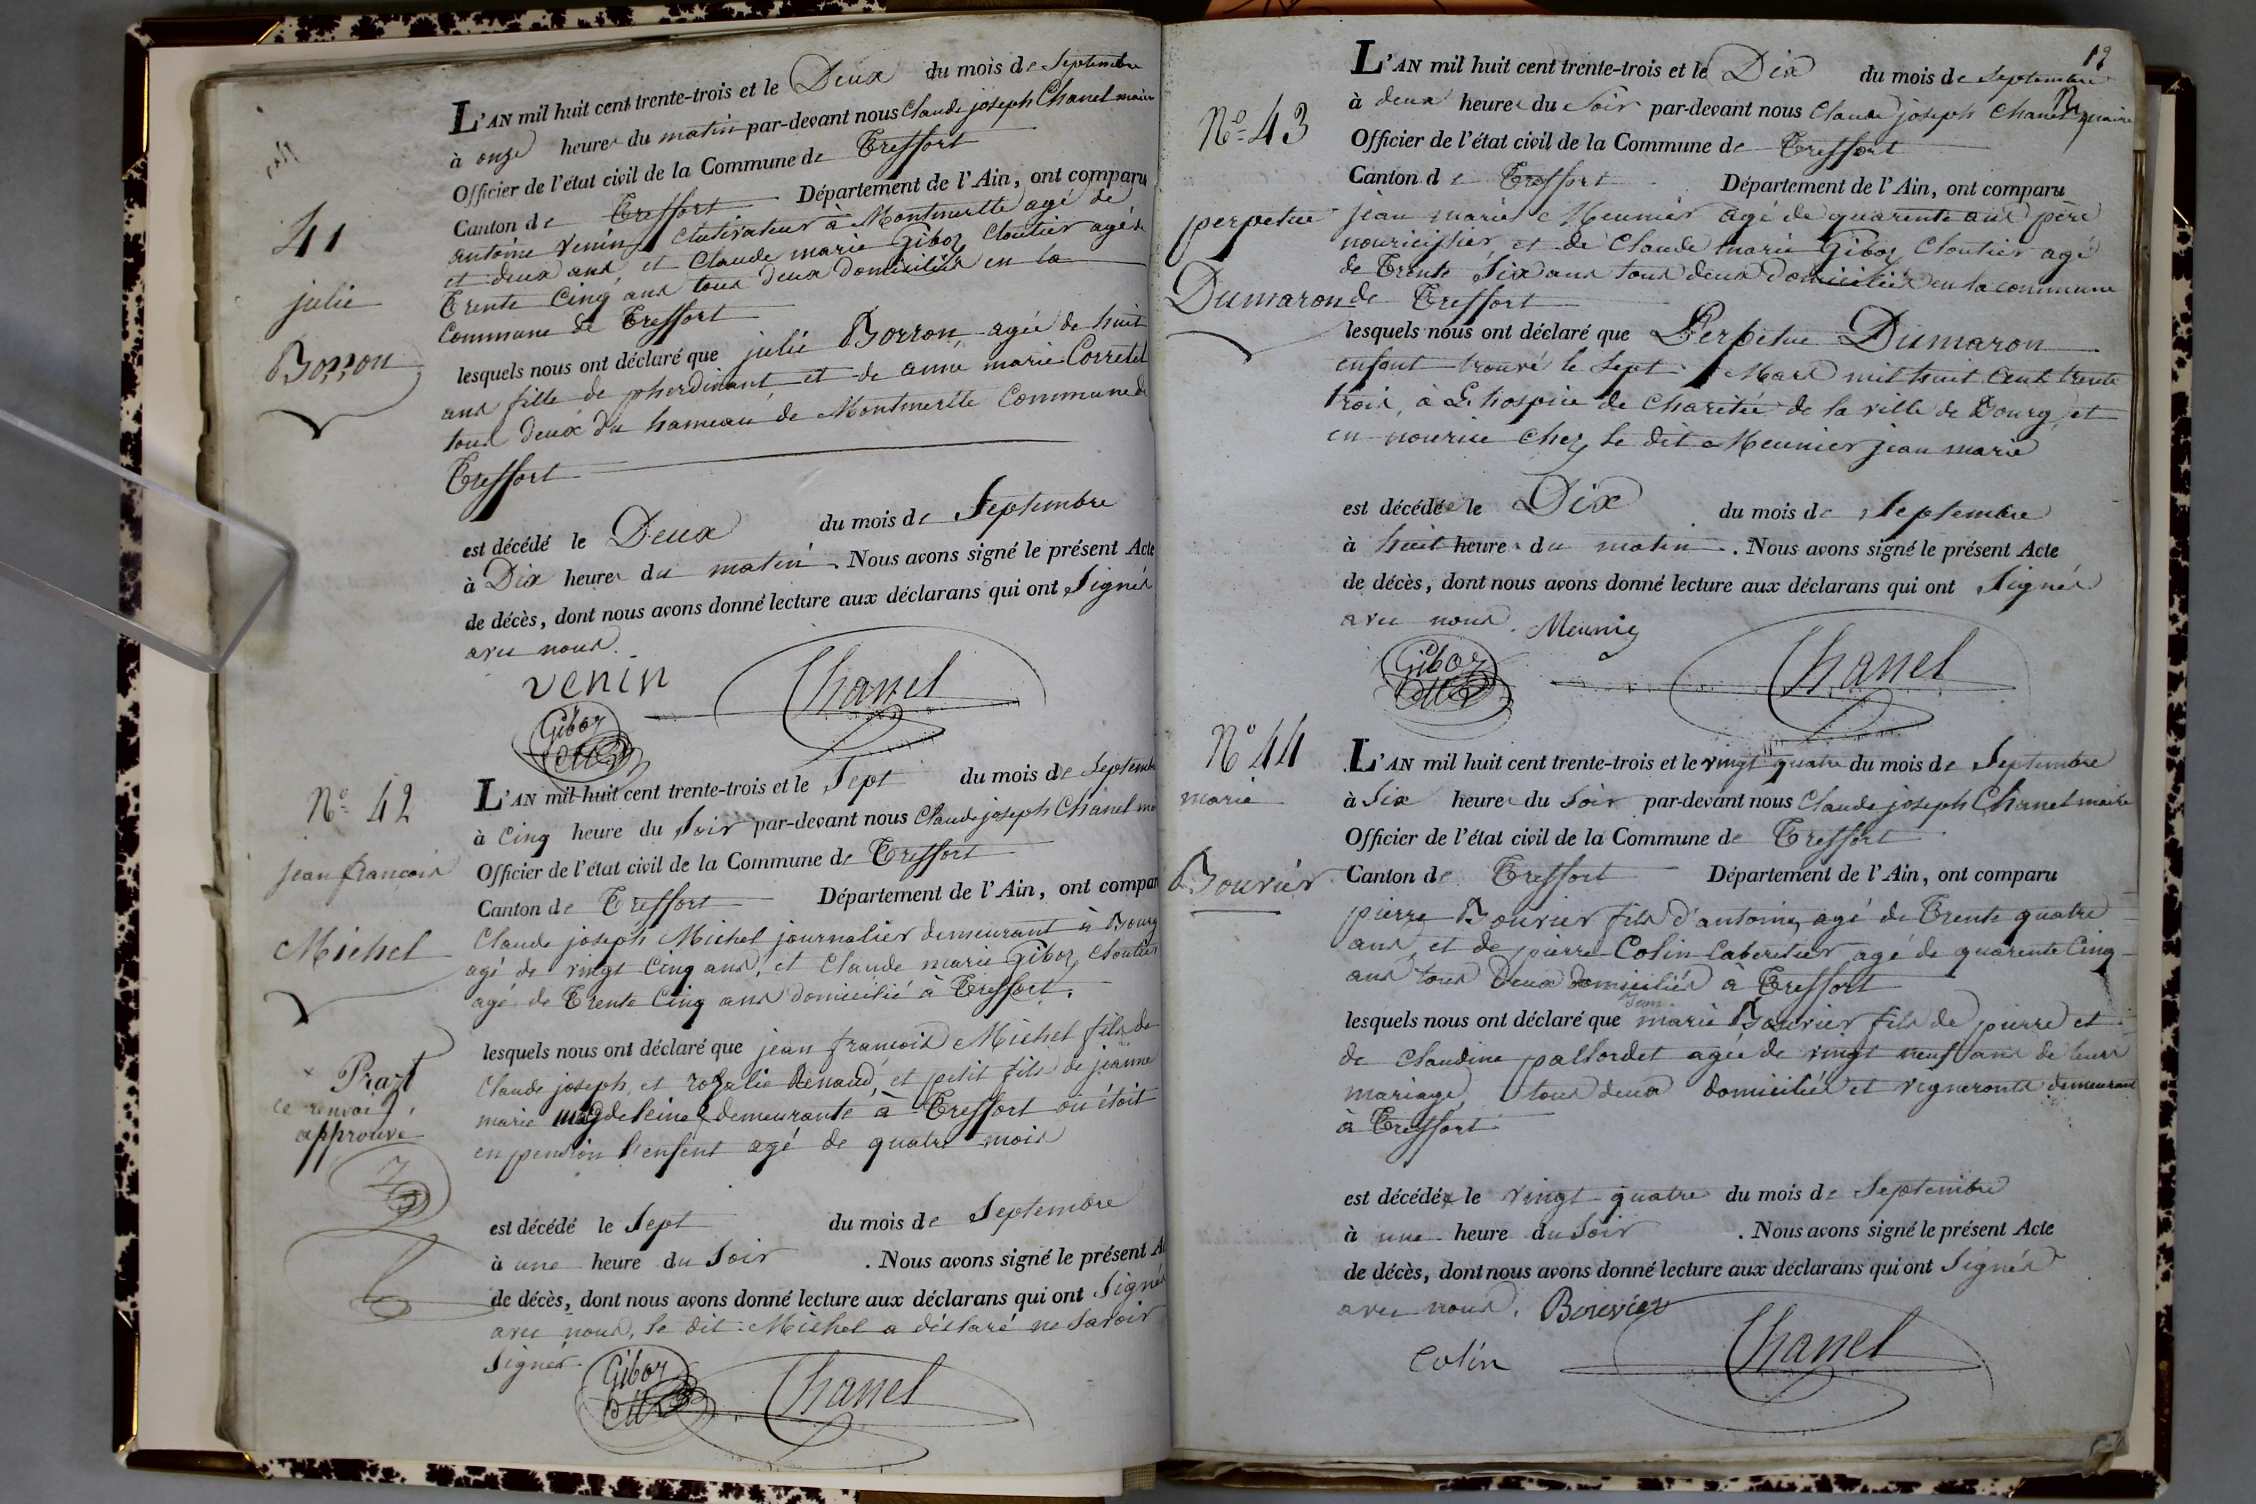 41
julie
Borron
L'AN mil huit cent trente-trois et le Deux du mois de Septembre
à onze heures du matin par-devant nous Claude joseph Chanel maire
Officier de l'état civil de la Commune de Treffort
Canton de Treffort Département de l'Ain, ont comparu
antoine venin Cultivateur à Montmerlle agé de
et deux ans, et Claude marie Giboz Cloutier agé de
Trente Cinq ans tous deux domiciliés en la
Commune de Treffort
lesquels nous ont déclaré que julie Borron agée de huit
ans fille de pherdinant et de anne marie Corretel
tous deux du hameau de Montmerlle Commune de
Treffort
est décédé le Deux du mois de Septembre
à Dix heures du matin . Nous avons signé le présent Acte
de décès, dont nous avons donné lecture aux déclarans qui ont Signés
avec nous.
venin
Chanel
Giboz
N° 42
jean francois
Michel
L'AN mil huit cent trente-trois et le Sept du mois de Septembre
à Cinq heure du Soir par-devant nous Claude joseph Chanel
Officier de l'état civil de la Commune de Treffort
Canton de Treffort Département de l'Ain, ont comparu
Claude joseph Michel journalier demeurant à Bourg
agé de vingt Cinq ans, et Claude marie Giboz Cloutier
agé de Trente Cinq ans domicilié à Treffort.
lesquels nous ont déclaré que jean francois Michel fils de
Claude joseph, et rozalie Renaud, et petit fils de jeanne
marie magdeleine x demeurante à Treffort où étoit
en pension l'enfent agé de quatre mois
x Prazt
ce renvoi
approuvé
est décédé le Sept du mois de Septembre
à une heure du Soir . Nous avons signé le présent
de décès, dont nous avons donné lecture aux déclarans qui ont Signés
avec nous, le dit Michel a déclaré ne Savoir
Signer
Giboz
Chanel
12
N° 43
perpetue
Dumaron
L'AN mil huit cent trente-trois et le Dix du mois de Septembre
à deux heures du Soir par-devant nous Claude joseph Chanel maire
Officier de l'état civil de la Commune de Treffort
Canton de Treffort Département de l'Ain, ont comparu
jean marie Meunier agé de quarente ans père
nouricissier, et de Claude marie Giboz Cloutier agé
de Trente Six ans tous deux domiciliés en la commune
de Treffort
lesquels nous ont déclaré que Perpetue Dumaron
enfent trouvé le Sept Mars mil huit Cent trente
trois, à L'hospice de Charitée de la ville de Bourg, et
en nourice chez le dit Meunier jean marie
est décédée le Dix du mois de Septembre
à huit heures du matin . Nous avons signé le présent Acte
de décès, dont nous avons donné lecture aux déclarans qui ont Signés
avec nous.
Giboz
Chanel
N° 44
marie
Bouvier
L'AN mil huit cent trente-trois et le vingt quatre du mois de Septembre
à Six heures du Soir par-devant nous Claude joseph Chanel maire
Officier de l'état civil de la Commune de Treffort
Canton de Treffort Département de l'Ain, ont comparu
pierre Bouvier fils d'antoine, agé de Trente quatre
ans, et de pierre Colin Cabaretier agé de quarente Cinq
ans tous Deux domiciliés à Treffort
lesquels nous ont déclaré que marie Bouvier fils de pierre et
de Claudine pallordet agée de vingt neuf ans de leurs
mariage, tous deux domiciliés et vignerons demeurant
à Treffort
est décédée le vingt quatre du mois de Septembre
à une heure du Soir . Nous avons signé le présent Acte
de décès, dont nous avons donné lecture aux déclarans qui ont Signés
avec nous.
Colin
Chanel